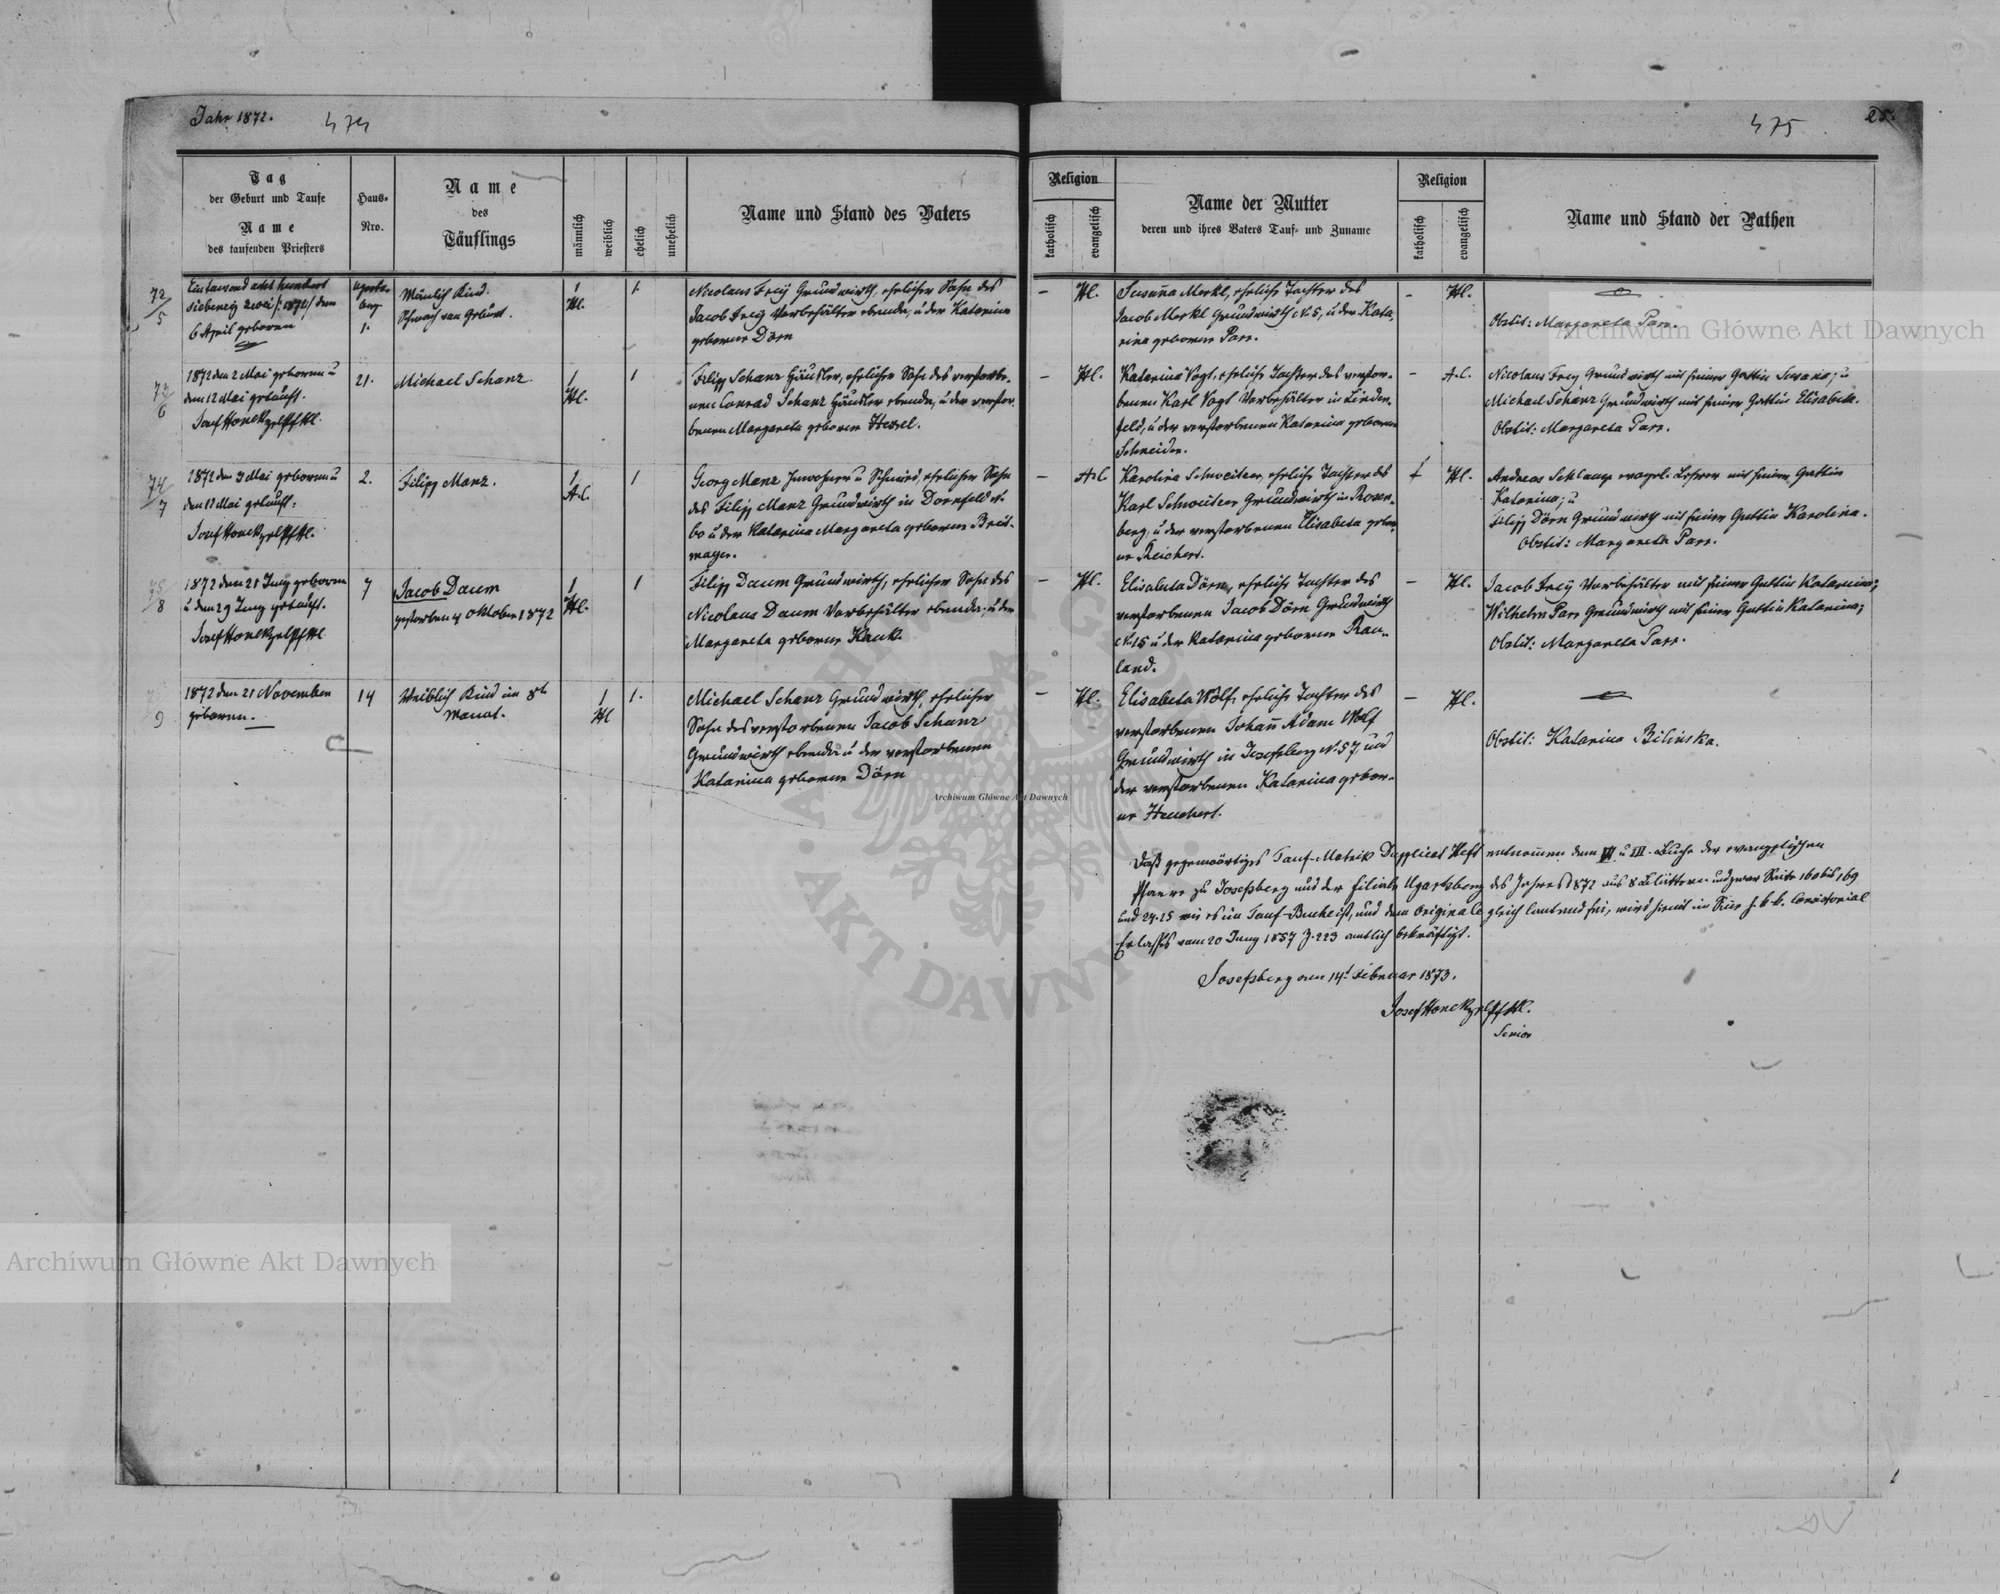 Jahr 1872.
474
475
25.
Tag
der Geburt und Taufe
Name
des taufenden Priesters
Haus-
Nro.
Name
des
Täuflings
männlich
weiblich
ehelich
unehelich
Name und Stand des Vaters
Religion
katholisch
evangelisch
Name der Mutter
deren und ihres Vaters Tauf- und Zuname
Religion
katholisch
evangelisch
Name und Stand der Pathen
72/5
Eintausend acht hundert
siebenzig zwei /:1872/ den
6 April geboren
Ugarts-
berg
1.
Mänlich Kind.
Schwach von Geburt.
1
Hl.
1
Nicolaus Frey Grundwirth, ehelicher Sohn des
Jacob Frey Vorbehälter ebenda, u der Katarina
geborene Dörn
–
Hl.
Susanna Merkl, eheliche Tochter des
Jacob Merkl Grundwirth N. 5, u der Kata,
rina geborene Parr.
–
Hl.
Obstit: Margareta Parr.
73/6
1872 den 2 Mai geboren u
den 12 Mai getauft.
Josef Honel
21.
Michael Schanz.
1
Hl.
1
Filipp Schanz Häusler, ehelicher Sohn des verstorbe-
nen Conrad Schanz Häusler ebenda, u der verstor-
benen Margareta geborene Hessel.
–
Hl.
Katarina Vogl, eheliche Tochter des verstor-
benen Karl Vogl Vorbehälter in Linden-
feld, u der verstorbenen Katarina geborene
Schneider.
–
A.C.
Nicolaus Frey Grundwirth mit seiner Gattin Susana; u
Michael Schanz Grundwirth mit seiner Gattin Elisabeta.
Obstit: Margareta Parr.
74/7
1872 den 3 Mai geboren u
den 17 Mai getauft.
2.
Filipp Manz.
1
A.C.
1
Georg Manz Inwohner u Schmied, ehelicher Sohn
des Filipp Manz Grundwirth in Dornfeld N.
60 u der Katarina Margareta geborene Breit-
mayer.
–
A.C
Karolina Schweitzer, eheliche Tochter des
Karl Schweitzer Grundwirth in Rosen-
berg, u der verstorbenen Elisabeta gebor
ne Reichert.
1
Hl.
Andreas Schlamp evangel. Lehrer mit seiner Gattin
Katarina; u
Filipp Dörn Grundwirth mit seiner Gattin Karolina.
Obstit: Margareta Parr.
75/8
1872 den 21 Juny geboren
u den 29 Juny getauft.
7
Jacob Daum
gestorben 4 Oktober 1872
1
Hl.
1
Filipp Daum Grundwirth, ehelicher Sohn des
Nicolaus Daum Vorbehälter ebenda, u der
Margareta geborene Kauk.
–
Hl.
Elisabeta Dörn, eheliche Tochter des
verstorbenen Jacob Dörn Grundwirth
N. 15 u der Katarina geborene Rau-
land.
–
Hl.
Jacob Frey Vorbehälter mit seiner Gattin Katarina;
Wilhelm Parr Grundwirth mit seiner Gattin Katarina;
Obstit: Margareta Parr.
9
1872 den 21 November
geboren.
14
Weiblich Kind im 8t
Monat.
1
Hl
1.
Michael Schanz Grundwirth, ehelicher
Sohn des verstorbenen Jacob Schanz
Grundwirth ebenda u der verstorbenen
Katarina geborene Dörn
–
Hl.
Elisabeta Wolf, eheliche Tochter des
verstorbenen Johañ Adam Wolf
Grundwirth in Josefsberg N. 57, und
der verstorbenen Katarina gebor-
ne Heuchert.
–
Hl.
Obstit: Katarina Bilinska.
Daß gegenwärtiges Tauf-Matrik Duplicat Heft entnommen dem VI u III. Buche der evangelischen
Pfarre zu Josefsberg und der Filiale Ugartsberg des Jahres 1872 aus 8 Blättern und zwar Seite 160 bis 169
und 24.25 wie es im Tauf-Buche ist, und dem Originale gleich lautend sei, wird hiemit im Sinne h. k.k. Consistorial
Erlasses vom 20 Juny 1857 Z. 223 amtlich bekräftigt.
Josefsberg am 14t Februar 1873.
Senior
Archiwum Główne Akt Dawnych
Archiwum Główne Akt Dawnych
Archiwum Główne Akt Dawnych
AKT DAWNYCH